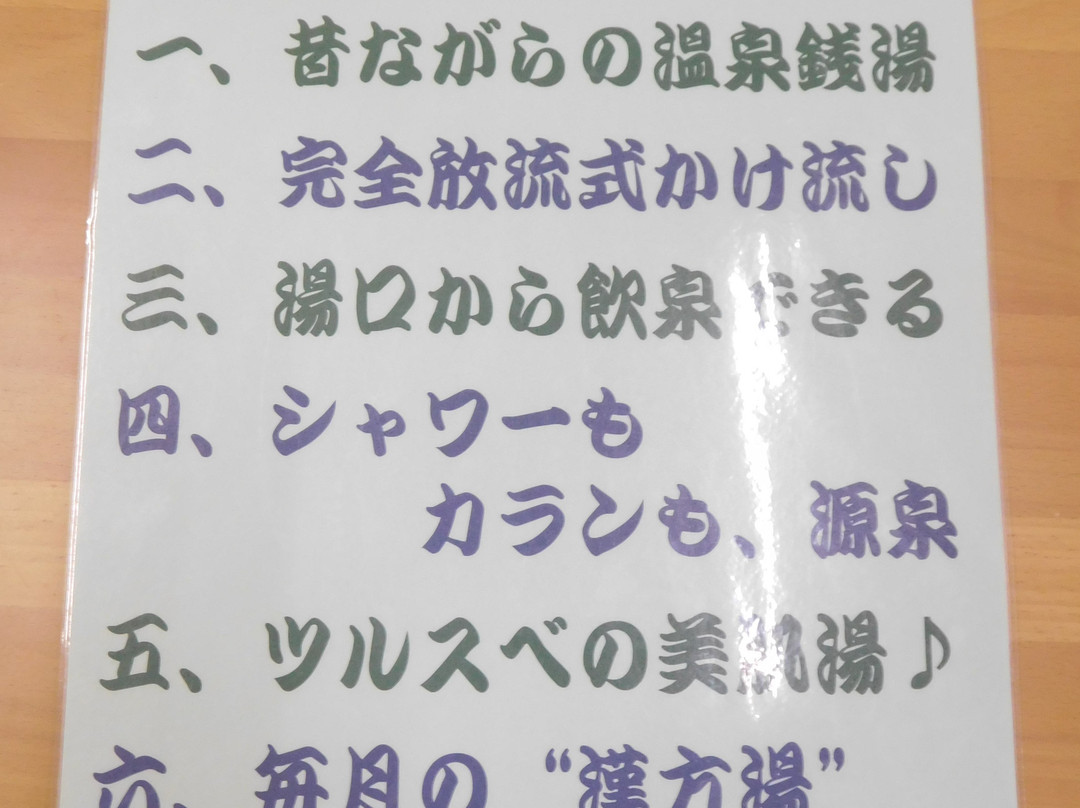 一、昔ながらの温泉銭湯
二、完全放流式かけ流し
三、湯口から飲泉できる
四、シャワーも
カランも、源泉
五、ツルスベの美肌湯♪
六、毎月の“漢方湯”